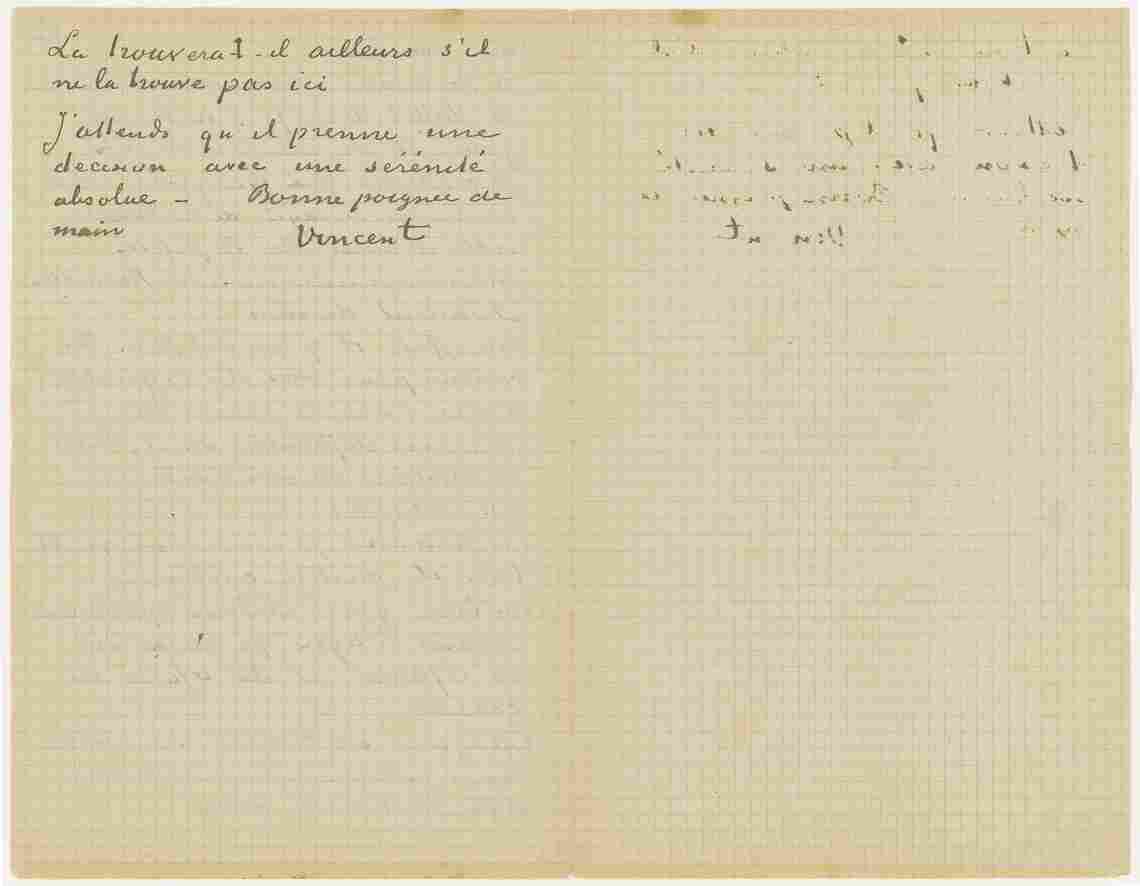 La trouvera-t-il ailleurs s'il
ne la trouve pas ici
J'attends qu'il prenne une
decision avec une sérénité
absolue – Bonne poignee de
main Vincent